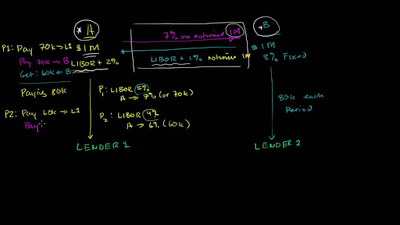 * A
7% on notional 1M
* B
P1: Pay 70k → L1
$1M
$1M
Pay 70k → B
LIBOR + 2%
LIBOR + 1% notional 1M
8% Fixed
Get: 60k ← B
Paying 80k
P1: LIBOR 5%
A → 7% (or 70k)
80k each
Period
P2: Pay 60k → L1
P2: LIBOR 4%
Pay:
A → 6% (60k)
LENDER 1
LENDER 2